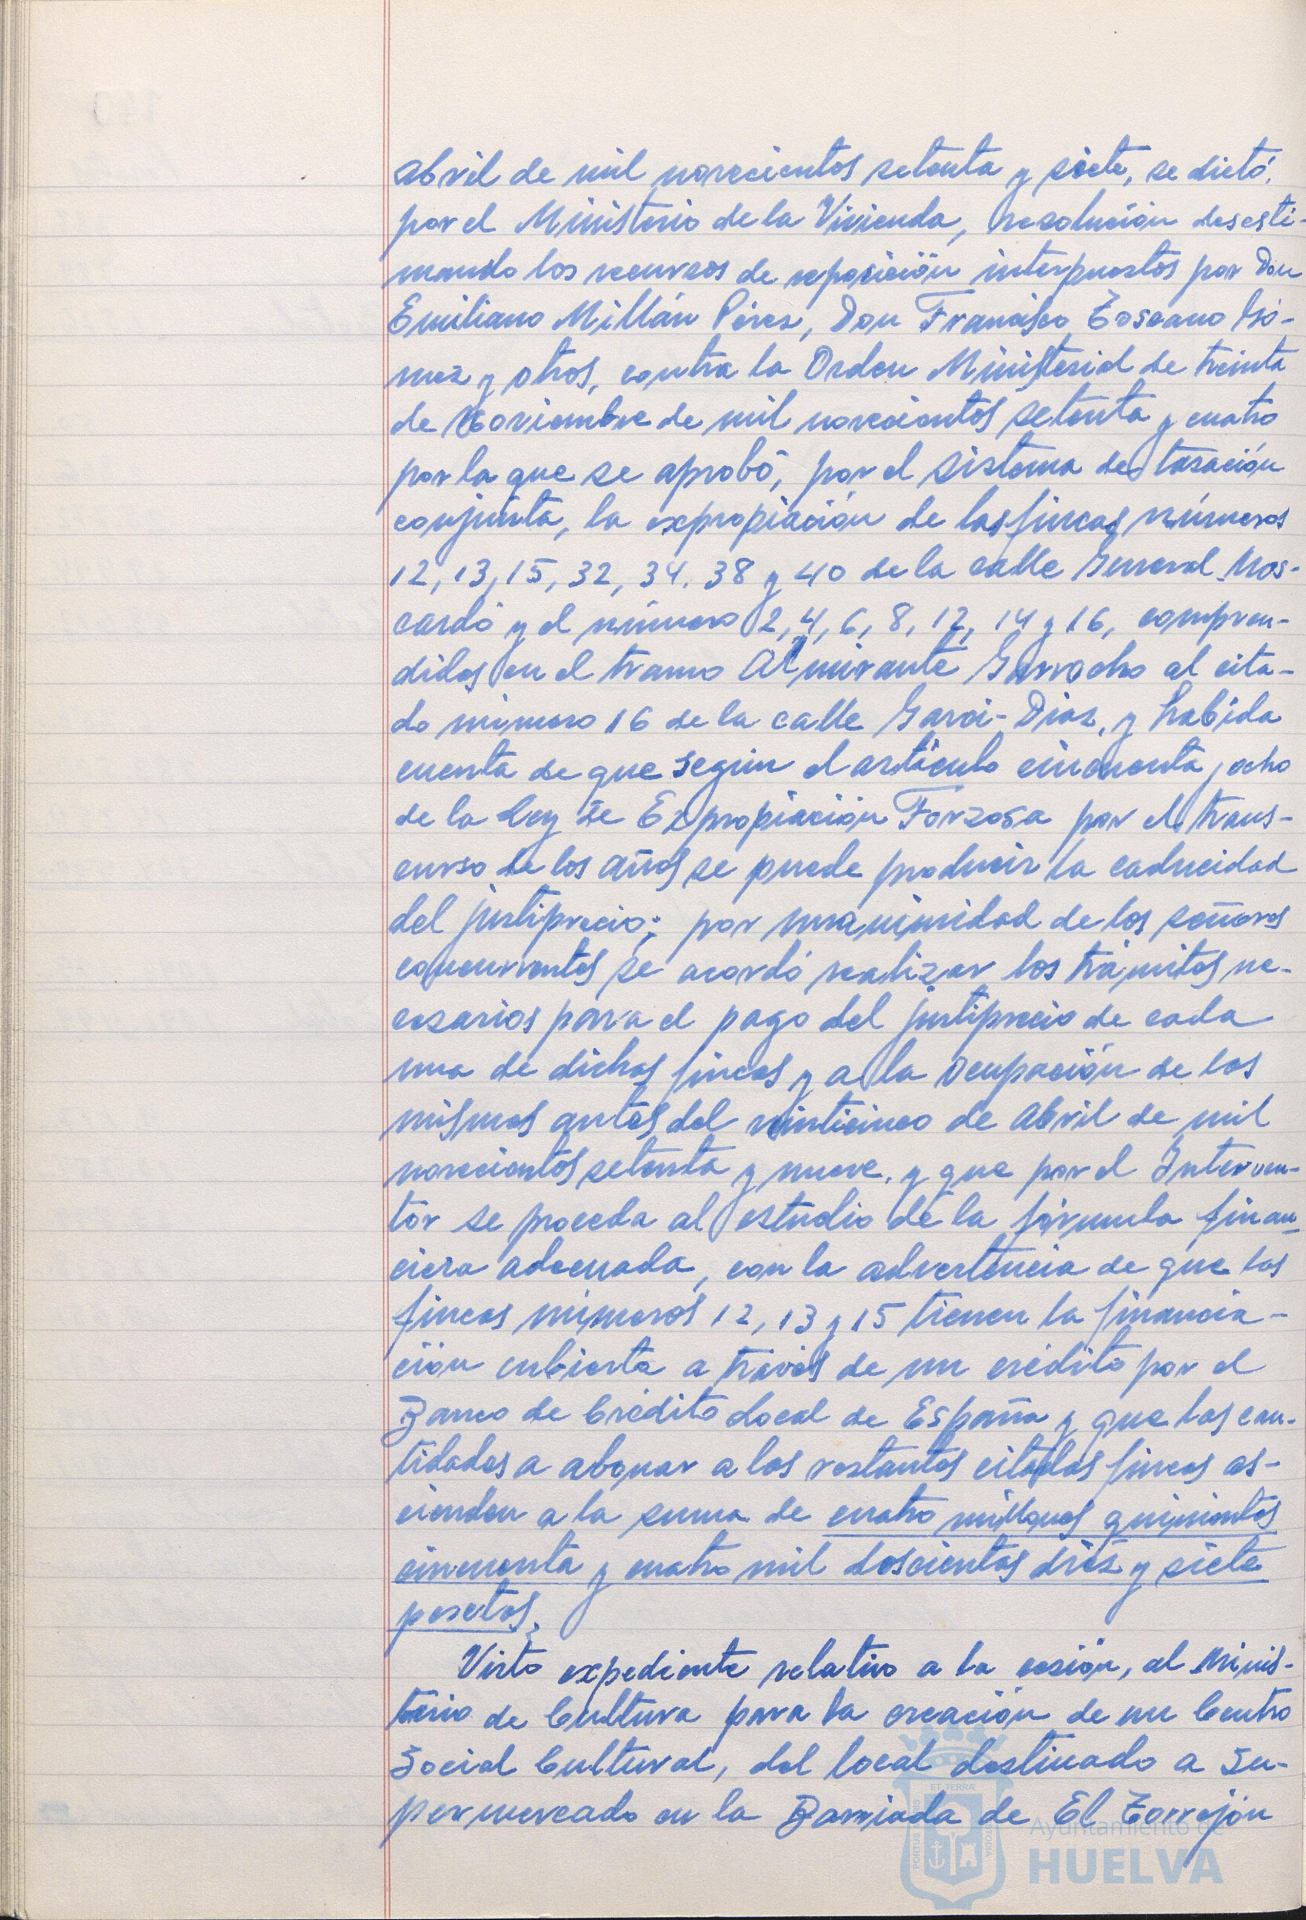 abril de mil novecientos setenta y siete, se dictó,
por el Ministerio de la Vivienda, resolución desesti-
mando los recursos de reposición interpuestos por Don
Emiliano Millán Pérez, Don Francisco Toscano Gó-
mez y otros, contra la Orden Ministerial de treinta
de Noviembre de mil novecientos setenta y cuatro
por la que se aprobó, por el sistema de tasación
conjunta, la expropiación de las fincas números
12, 13, 15, 32, 34, 38 y 40 de la calle General Mos-
cardó y el número 2, 4, 6, 8, 12, 14 y 16, compren-
didos en el tramo Almirante Garrocho al cita-
do número 16 de la calle Garci-Díaz, y habida
cuenta de que según el artículo cincuenta y ocho
de la Ley de Expropiación Forzosa por el trans-
curso de los años se puede producir la caducidad
del justiprecio; por unanimidad de los señores
concurrentes se acordó realizar los trámites ne-
cesarios para el pago del justiprecio de cada
una de dichas fincas y a la ocupación de las
mismas antes del veinticinco de abril de mil
novecientos setenta y nueve, y que por el Interven-
tor se proceda al estudio de la fórmula finan-
ciera adecuada, con la advertencia de que las
fincas números 12, 13 y 15 tienen la financia-
ción cubierta a través de un crédito por el
Banco de Crédito Local de España y que las can-
tidades a abonar a las restantes citadas fincas as-
cienden a la suma de cuatro millones quinientas
cincuenta y cuatro mil doscientas diez y siete
pesetas.
Visto expediente relativo a la cesión, al Minis-
terio de Cultura para la creación de un Centro
Social Cultural, del local destinado a Su-
permercado en la Barriada de El Torrejón
ET TERRA
PORTUS MARIS
CUSTODIA
Ayuntamiento de
HUELVA